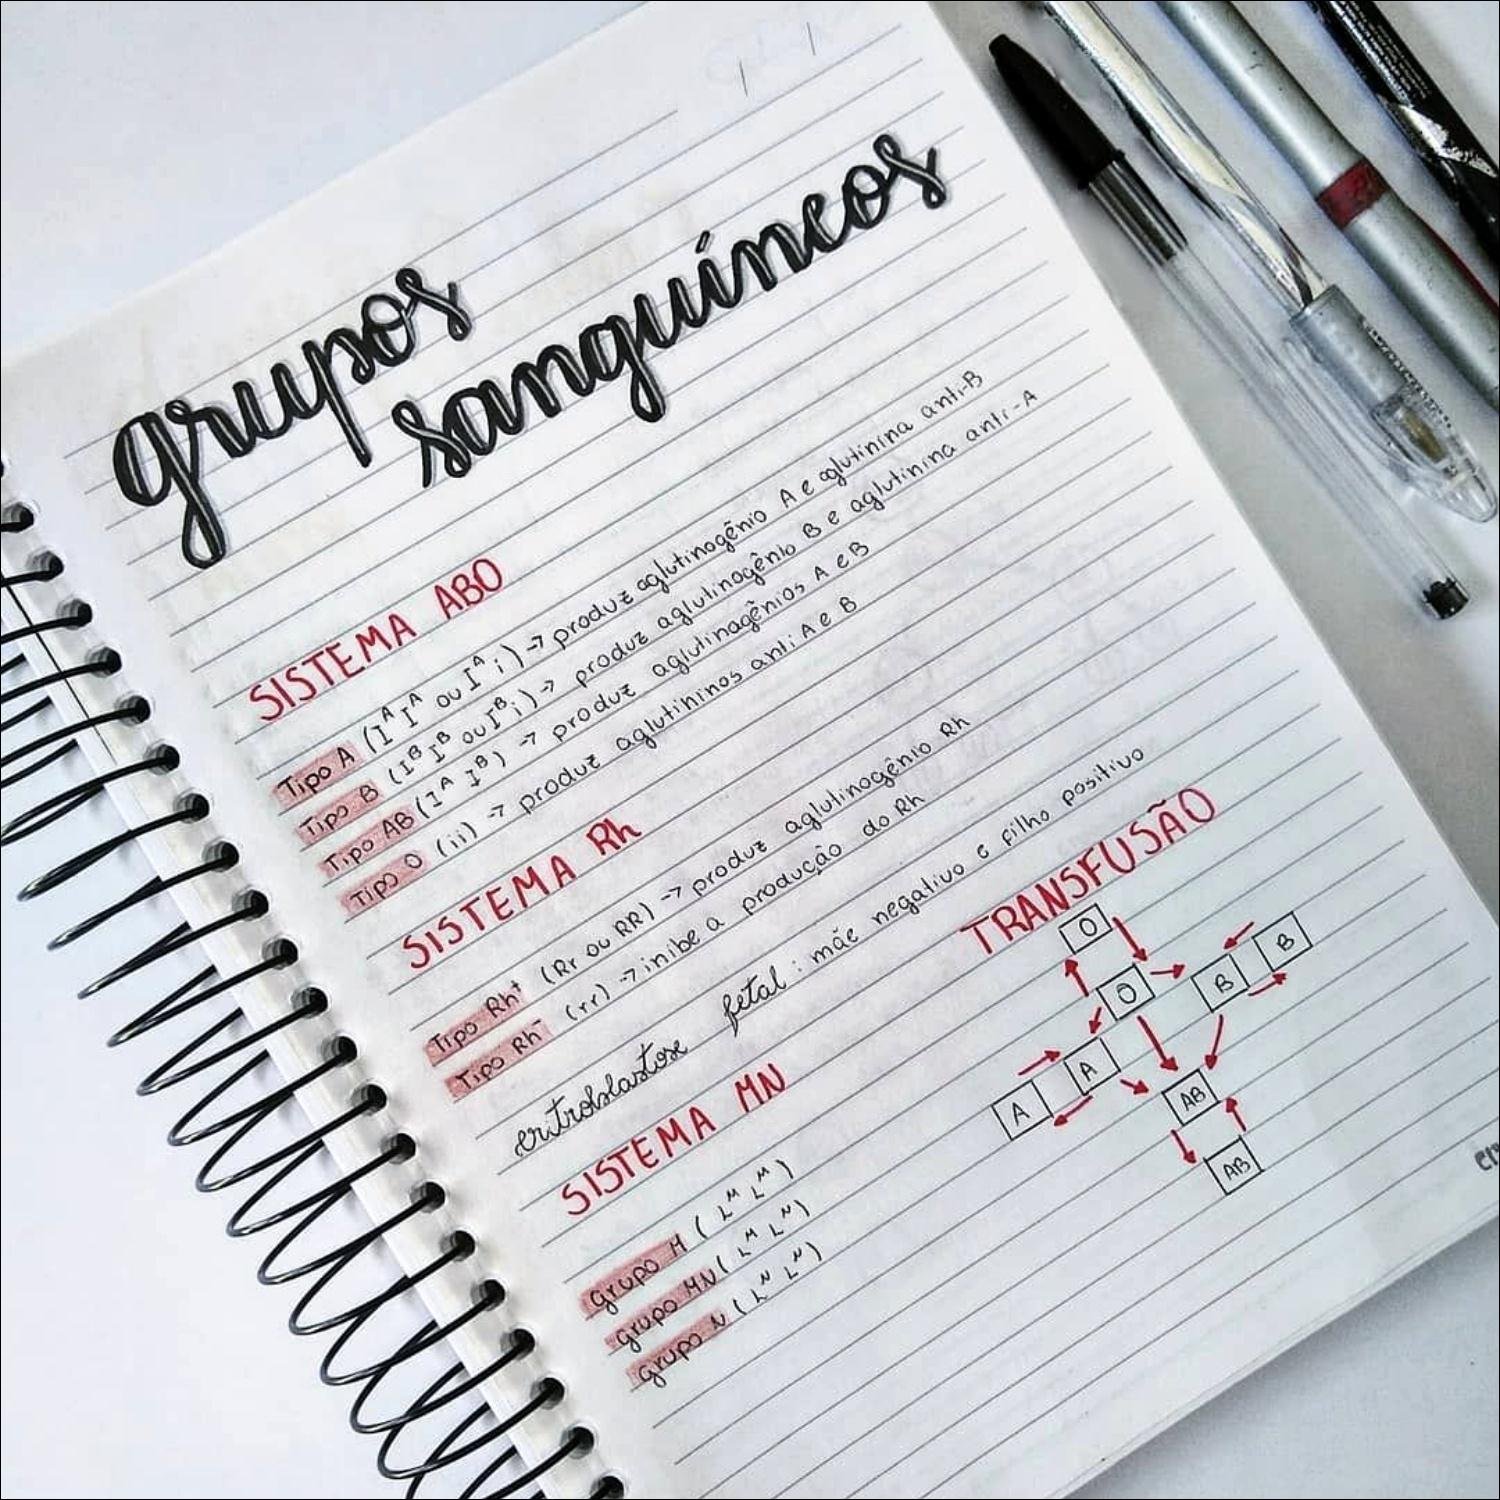 grupos
sanguíneos
SISTEMA ABO
Tipo A (I^A I^A ou I^A i) -> produz aglutinogênio A e aglutinina anti-B
Tipo B (I^B I^B ou I^B i) -> produz aglutinogênio B e aglutinina anti-A
Tipo AB (I^A I^B) -> produz aglutinagênios A e B
Tipo O (ii) -> produz aglutininos anti A e B
SISTEMA Rh
Tipo Rh+ (Rr ou RR) -> produz aglutinogênio Rh
Tipo Rh- (rr) -> inibe a produção do Rh
eritroblastose fetal: mãe negativo e filho positivo
SISTEMA MN
grupo M (L^M L^M)
grupo MN (L^M L^N)
grupo N (L^N L^N)
TRANSFUSÃO
O
O
B
B
A
A
AB
AB